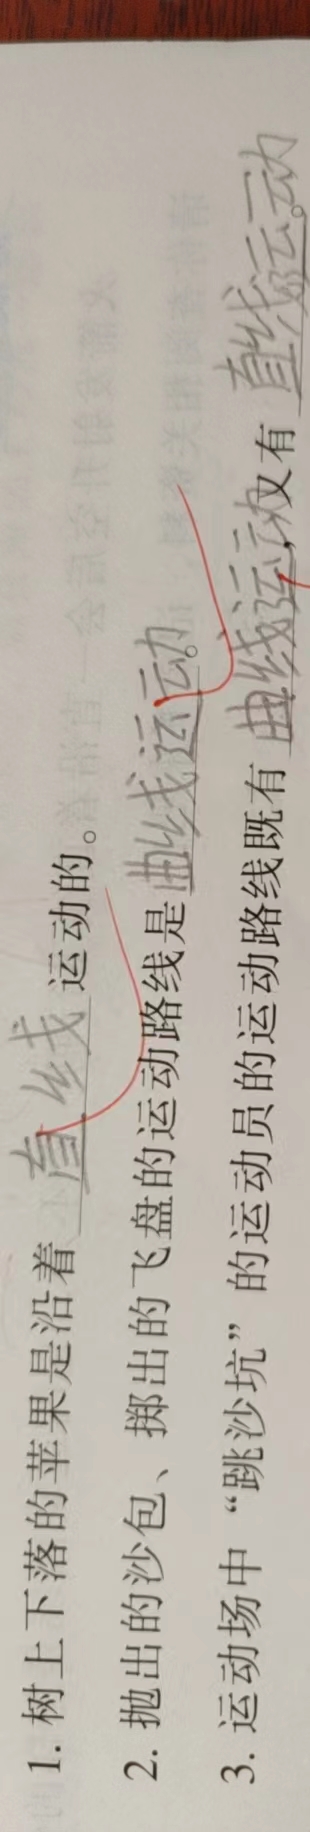 1. 树上下落的苹果是沿着直线运动的。
2. 抛出的沙包、掷出的飞盘的运动路线是曲线运动。
3. 运动场中“跳沙坑”的运动员的运动路线既有曲线运动,又有直线运动。